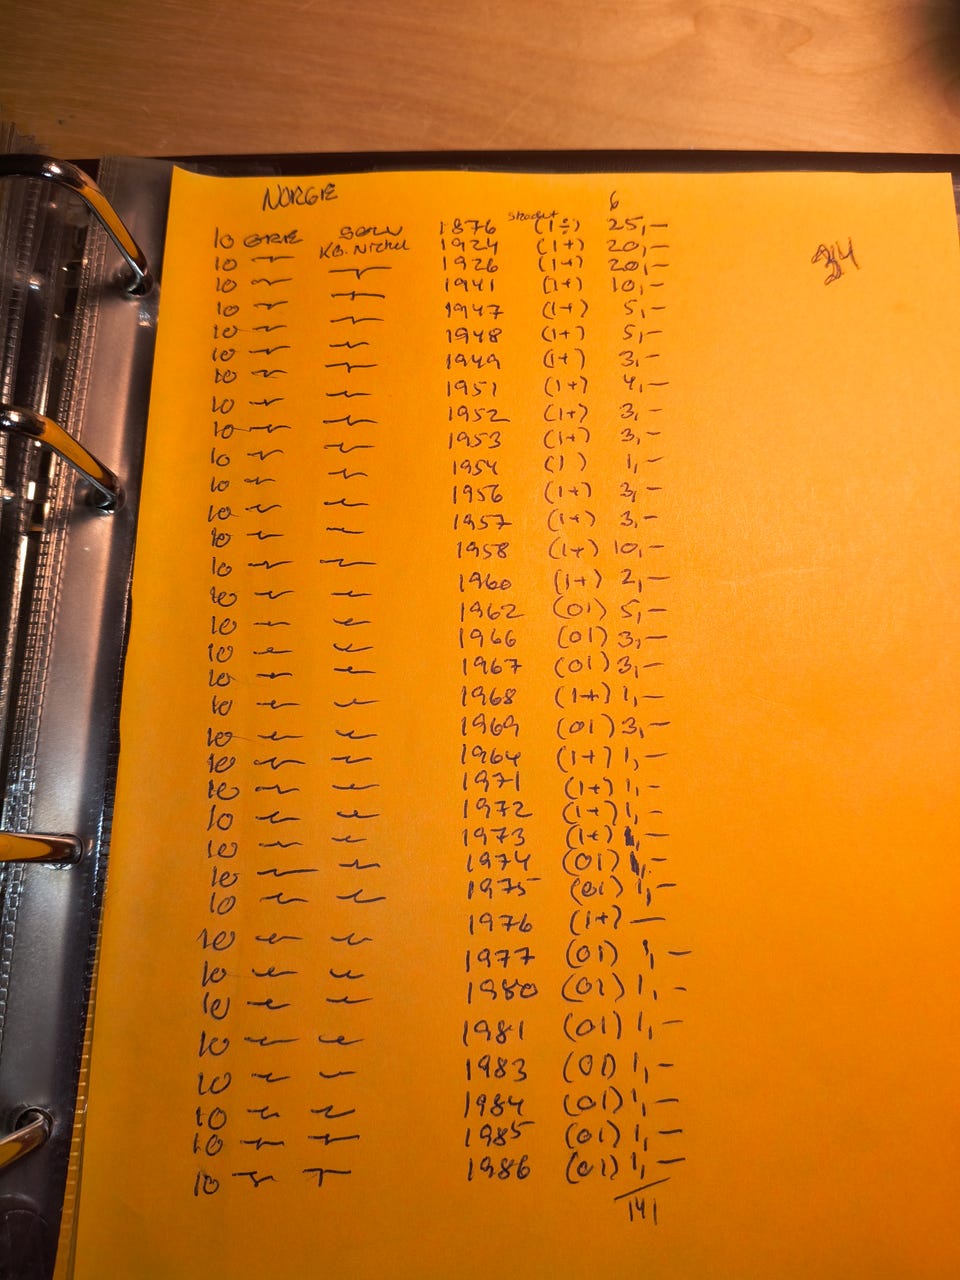 NORGE 6
10 ØRE SØLV 1876 skadet (1÷) 25,-
10 -"- KO. Nickel 1924 (1+) 20,-
10 -"- -"- 1926 (1+) 20,-
10 -"- -"- 1941 (1+) 10,-
10 -"- -"- 1947 (1+) 5,-
10 -"- -"- 1948 (1+) 5,-
10 -"- -"- 1949 (1+) 3,-
10 -"- -"- 1951 (1+) 4,-
10 -"- -"- 1952 (1+) 3,-
10 -"- -"- 1953 (1+) 3,-
10 -"- -"- 1954 (1) 1,-
10 -"- -"- 1956 (1+) 3,-
10 -"- -"- 1957 (1+) 3,-
10 -"- -"- 1958 (1+) 10,-
10 -"- -"- 1960 (1+) 2,-
10 -"- -"- 1962 (01) 5,-
10 -"- -"- 1966 (01) 3,-
10 -"- -"- 1967 (01) 3,-
10 -"- -"- 1968 (1+) 1,-
10 -"- -"- 1969 (01) 3,-
10 -"- -"- 1964 (1+) 1,-
10 -"- -"- 1971 (1+) 1,-
10 -"- -"- 1972 (1+) 1,-
10 -"- -"- 1973 (1+) 1,-
10 -"- -"- 1974 (01) 1,-
10 -"- -"- 1975 (01) 1,-
10 -"- -"- 1976 (1+) -
10 -"- -"- 1977 (01) 1,-
10 -"- -"- 1980 (01) 1,-
10 -"- -"- 1981 (01) 1,-
10 -"- -"- 1983 (01) 1,-
10 -"- -"- 1984 (01) 1,-
10 -"- -"- 1985 (01) 1,-
10 -"- -"- 1986 (01) 1,-
141
34